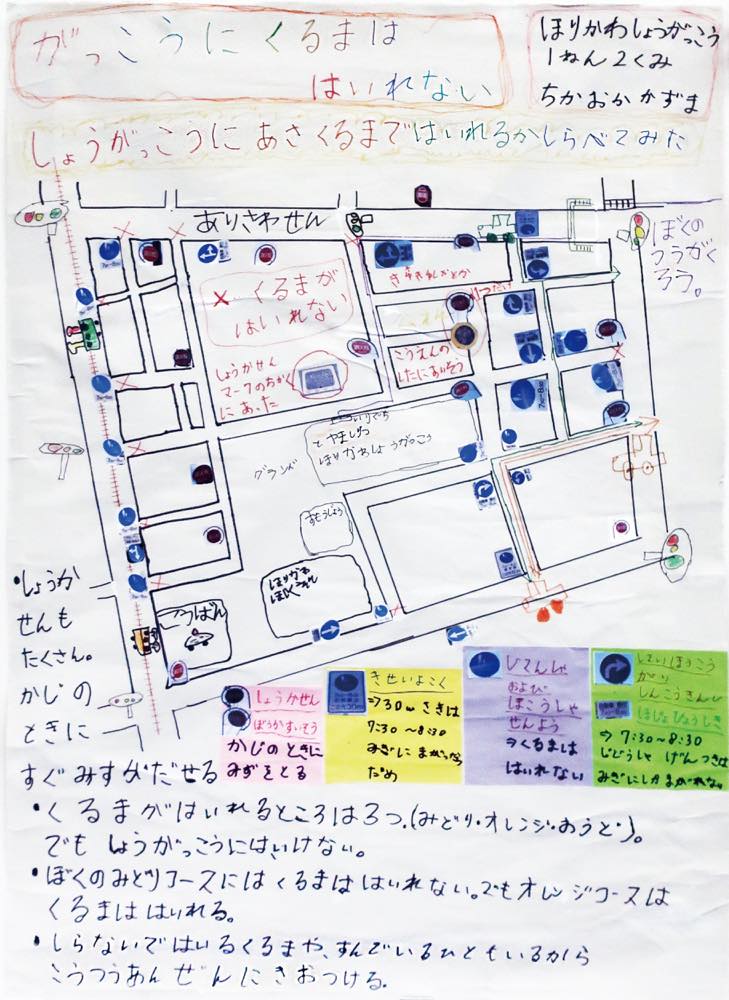 がっこうにくるまは
はいれない
ほりかわしょうがっこう
1ねん2くみ
ちかおかかずま
しょうがっこうにあさくるまではいれるかしらべてみた
ありさわせん
ぼくの
つうがく
ろう。
× くるまが
はいれない
しょうかせん
マークのちかく
にあった
こうえんの
したにあいそう
いりぐち
とやましりつ
ほりかわしょうがっこう
グランド
すもうじょう
ほりかわ
こうばん
・しょうか
せんも
たくさん。
かじの
ときに
すぐみずがだせる
しょうかせん
ぼうかすいそう
かじのときに
みずをとる
きせいよこく
⇒30mさきは
7:30〜8:30
みぎにまがったら
だめ
じてんしゃ
および
ほこうしゃ
せんよう
⇒くるまは
はいれない
していほうこう
がい
しんこうきんし
ほじょひょうしき
⇒7:30〜8:30
じどうしゃ げんつきは
みぎにしかまがれない
・くるまがはいれるところは3つ。(みどり・オレンジ・おうど)。
でもしょうがっこうにはいけない。
・ぼくのみどりコースにはくるまははいれない。でもオレンジコースは
くるまははいれる。
・しらないではいるくるまや、すんでいるひともいるから
こうつうあんぜんにきおつける。